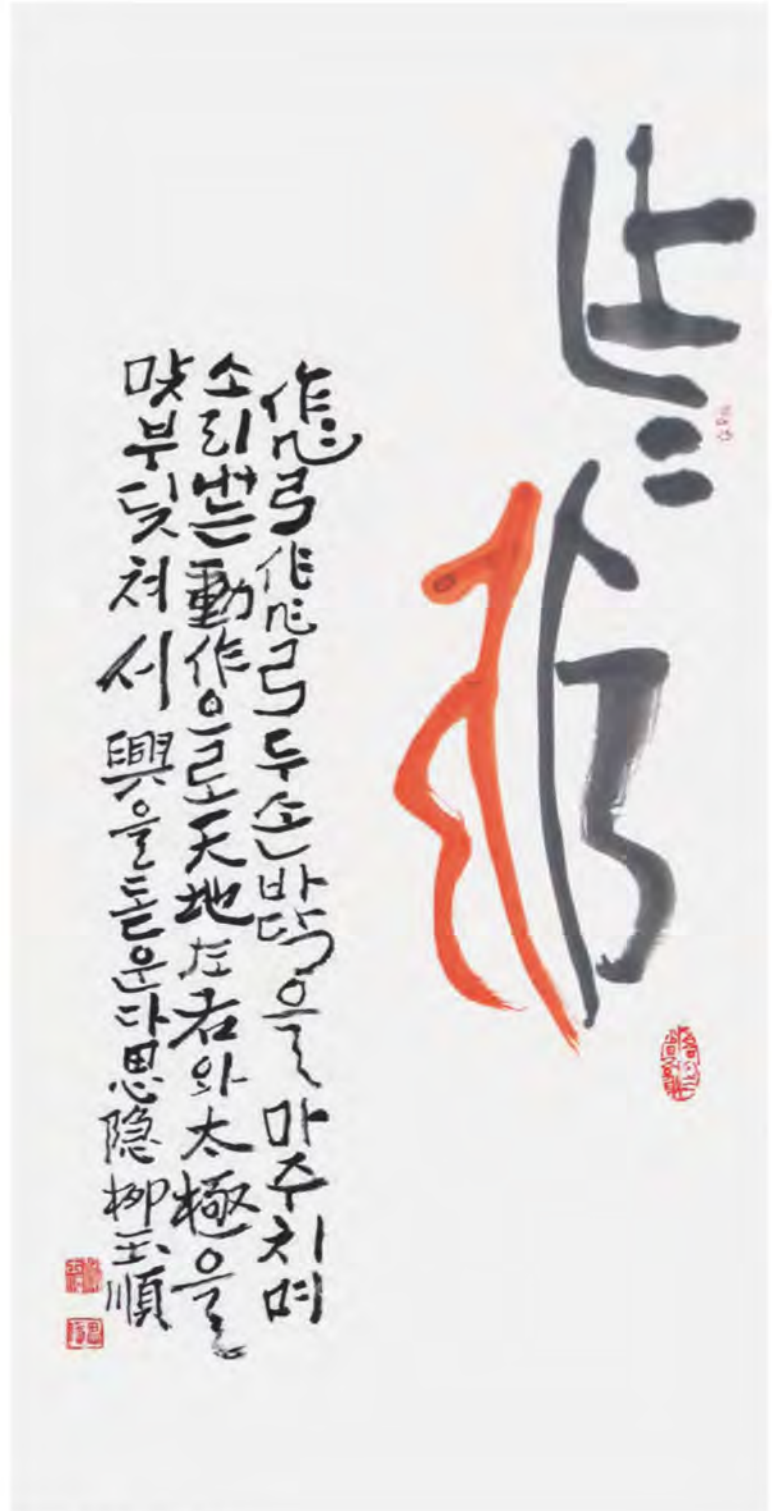 作作弓作作弓두손바닥을마주치며
소리내는動作으로天地左右와太極을
맞부딪쳐서興을돋운다思隐柳玉順